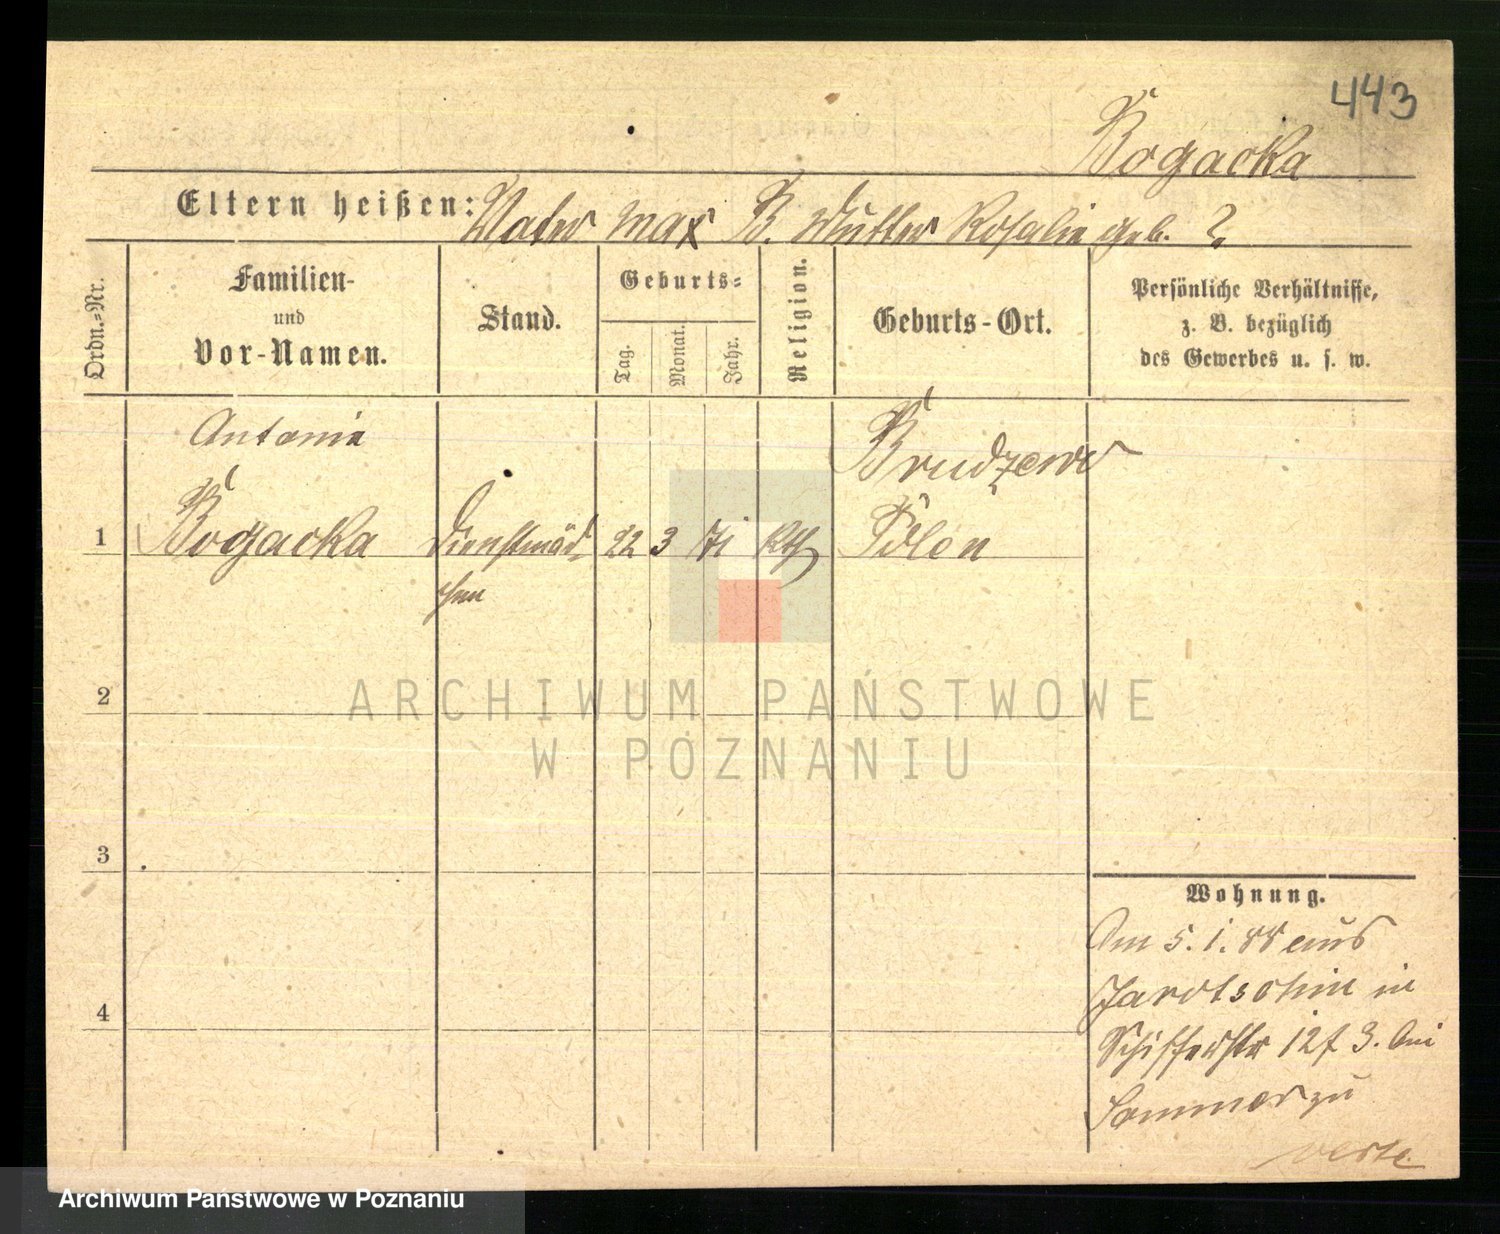 443
Bogacka
Eltern heißen: Vater Max B. Mutter Rosalie geb. ?
Ordn.-Nr.
Familien- und Vor-Namen.
Stand.
Geburts-
Tag.
Monat.
Jahr.
Religion.
Geburts-Ort.
Persönliche Verhältnisse,
z. B. bezüglich
des Gewerbes u. s. w.
Antonie
Brudzewo
1 Bogacka Dienstmäd- 22 3 71 Kth Polen
chen
2
ARCHIWUM PAŃSTWOWE
W POZNANIU
3
Wohnung.
Am 5. 1. 88 aus
Jarotschin in
4
Schifferstr 12 3. bei
Sommer zu
verte
Archiwum Państwowe w Poznaniu